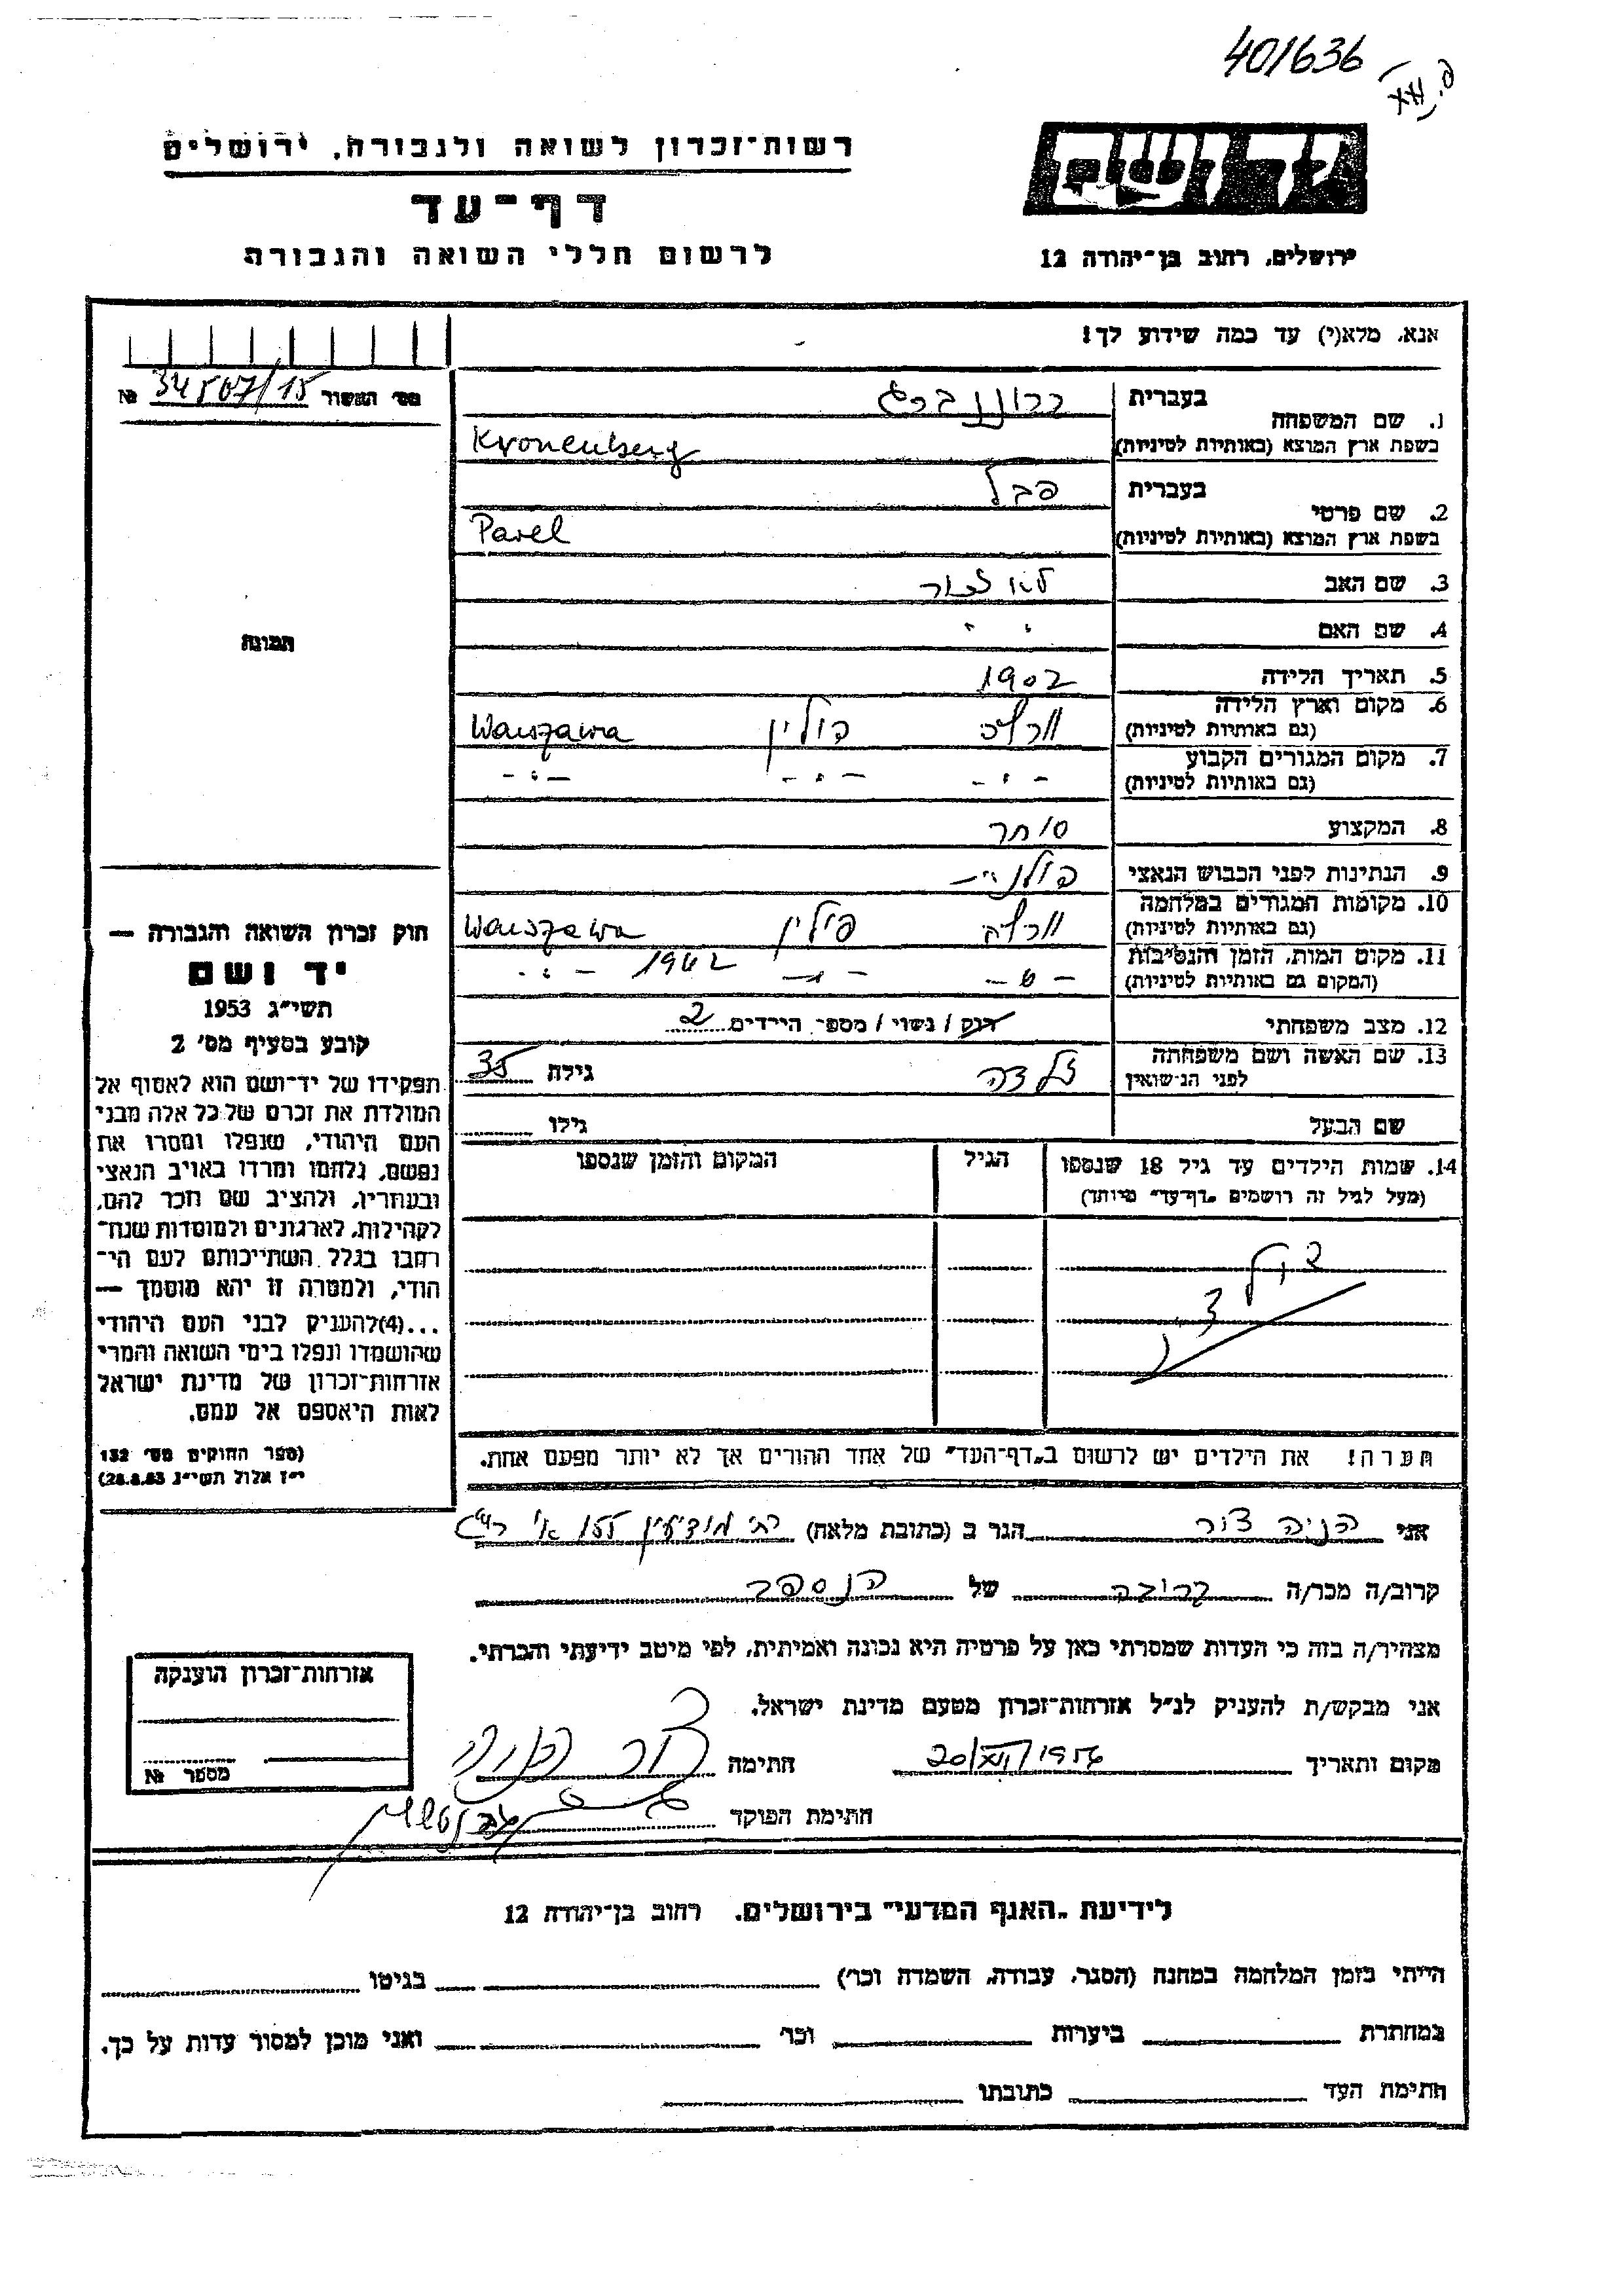 401/636
רשות־זכרון לשואה ולגבורה, ירושלים
דף־עד
לרשום חללי השואה והגבורה
יד ושם
ירושלים, רחוב בן־יהודה 12
אנא, מלא(י) עד כמה שידוע לך!
מס' האשור 34507/15 №
תמונה
1. שם המשפחה
בעברית קרוננברג
בשפת ארץ המוצא (באותיות לטיניות) Kronenberg
2. שם פרטי
בעברית פבל
בשפת ארץ המוצא (באותיות לטיניות) Pavel
3. שם האב לא זכור
4. שם האם " "
5. תאריך הלידה 1902
6. מקום וארץ הלידה (גם באותיות לטיניות) ורשה פולין Warszawa
7. מקום המגורים הקבוע (גם באותיות לטיניות) -"- -"- -"-
8. המקצוע סוחר
9. הנתינות לפני הכבוש הנאצי פולנית
10. מקומות המגורים במלחמה (גם באותיות לטיניות) ורשה פולין Warszawa
11. מקום המות, הזמן והנסיבות (המקום גם באותיות לטיניות) -"- -"- 1942 -"-
12. מצב משפחתי רוק / נשוי / מספר הילדים 2
13. שם האשה ושם משפחתה לפני הנישואין זלדה גילה 35
שם הבעל גילו
14. שמות הילדים עד גיל 18 שנספו הגיל המקום והזמן שנספו
(מעל לגיל זה רושמים „דף־עד” מיוחד)
הערה! את הילדים יש לרשום ב„דף־העד” של אחד ההורים אך לא יותר מפעם אחת.
חוק זכרון השואה והגבורה —
יד ושם
תשי״ג 1953
קובע בסעיף מס' 2
תפקידו של יד־ושם הוא לאסוף אל
המולדת את זכרם של כל אלה מבני
העם היהודי, שנפלו ומסרו את
נפשם, נלחמו ומרדו באויב הנאצי
ובעוזריו, ולהציב שם וזכר להם,
לקהילות, לארגונים ולמוסדות שנח־
רבו בגלל השתייכותם לעם הי־
הודי, ולמטרה זו יהא מוסמך —
...(4)להעניק לבני העם היהודי
שהושמדו ונפלו בימי השואה והמרי
אזרחות־זכרון של מדינת ישראל
לאות היאספם אל עמם.
(ספר החוקים מס' 132
י״ז אלול תשי״ג 28.8.53)
אני הניה צור הגר ב (כתובת מלאה)
קרוב/ה מכר/ה קרובה של הנספה
מצהיר/ה בזה כי העדות שמסרתי כאן על פרטיה היא נכונה ואמיתית, לפי מיטב ידיעתי והכרתי.
אני מבקש/ת להעניק לנ״ל אזרחות־זכרון מטעם מדינת ישראל.
מקום ותאריך חתימה
חתימת הפוקד
אזרחות־זכרון הוענקה
מספר №
לידיעת „האגף המדעי” בירושלים, רחוב בן־יהודה 12
הייתי בזמן המלחמה במחנה (הסגר, עבודה, השמדה וכו') בגיטו
במחתרת ביערות וכו' ואני מוכן למסור עדות על כך.
חתימת העד כתובתו